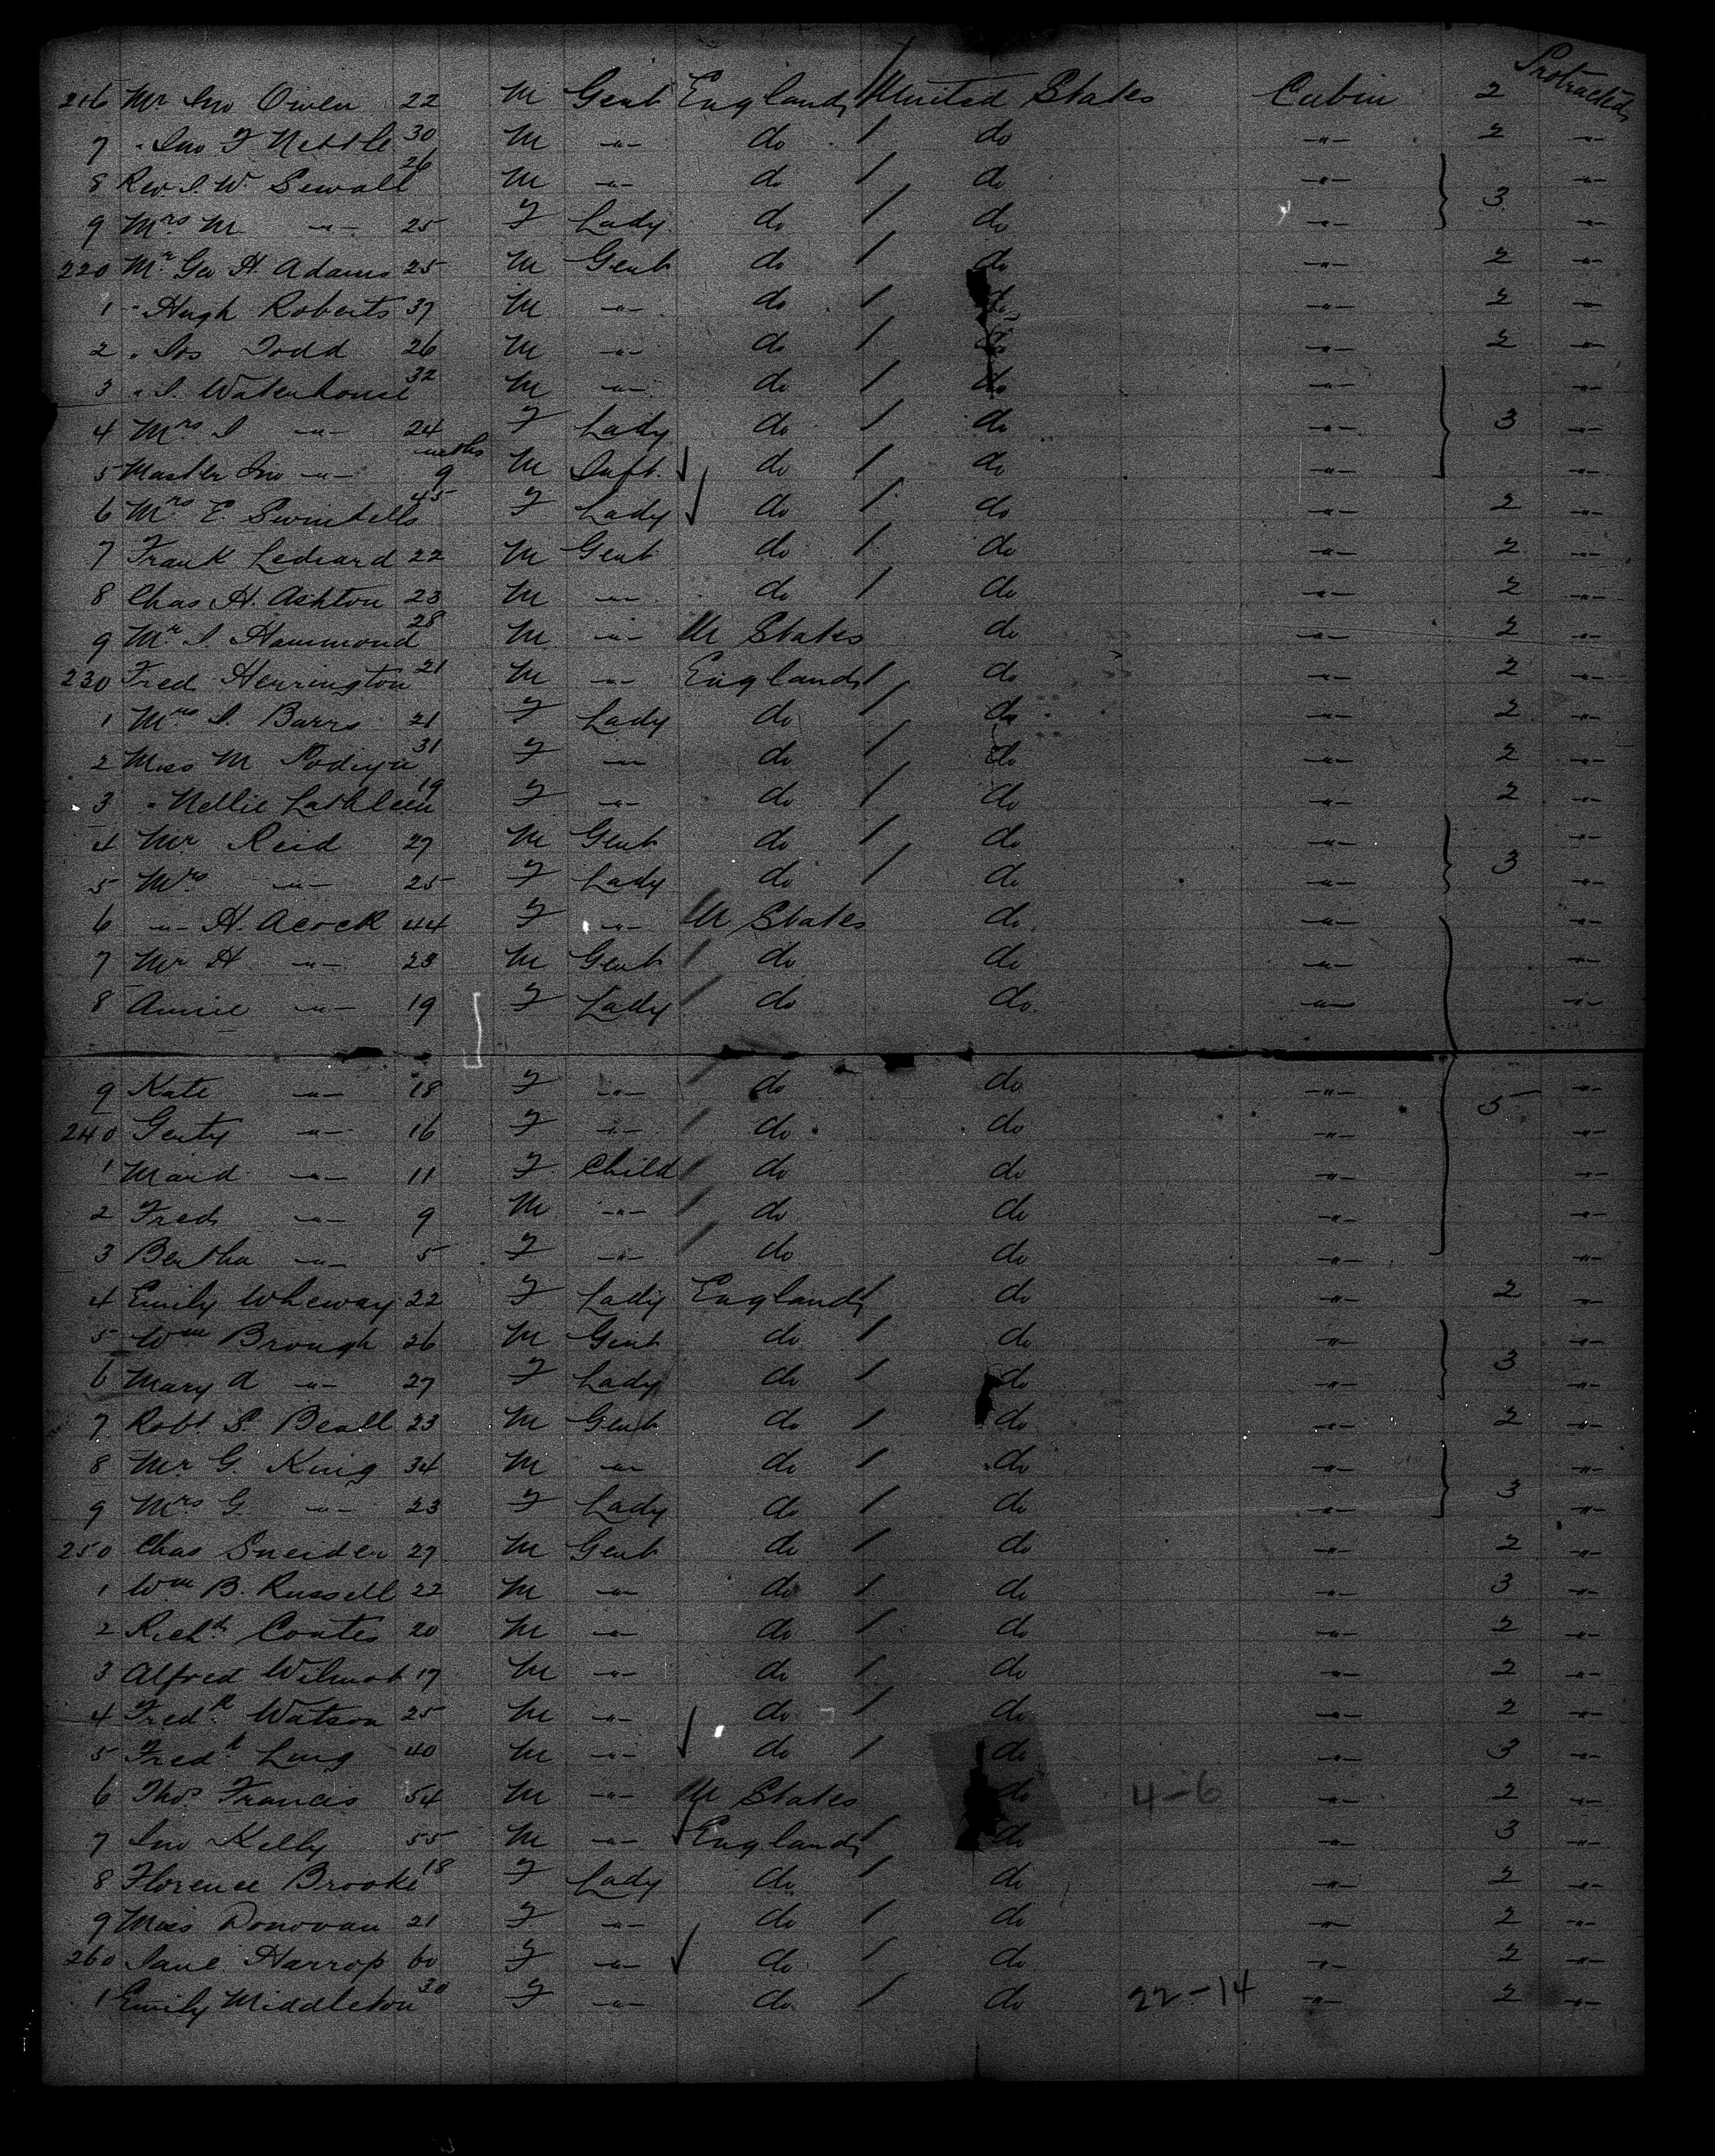 Protracted
216 Mr Jno Owen 22 M Gent England United States Cabin 2
7 " Jno F Nettle 30 M -"- do do -"- 2 -"-
8 Rev J. W. Sewall 26 M -"- do do -"- -"-
9 Mrs M -"- 25 F Lady do do -"- 3 -"-
220 Mr Geo H. Adams 25 M Gent do do -"- 2 -"-
1 " Hugh Roberts 37 M -"- do do -"- 2 -"-
2 " Jos Todd 26 M -"- do do -"- 2 -"-
3 " J. Waterhouse 32 M -"- do do -"- -"-
4 Mrs J -"- 24 F Lady do do -"- 3 -"-
5 Master Jno -"- 9 mths M Inft. do do -"-
6 Mrs E. Swindells 45 F Lady do do -"- 2 -"-
7 Frank Lediard 22 M Gent do do -"- 2 -"-
8 Chas H. Ashton 23 M -"- do do -"- 2 -"-
9 Mr J. Hammond 28 M -"- U States do -"- 2 -"-
230 Fred Herrington 21 M -"- England do -"- 2 -"-
1 Mrs J. Barrs 21 F Lady do do -"- 2 -"-
2 Miss M 31 F -"- do do -"- 2 -"-
3 " Nellie 19 F -"- do do -"- 2 -"-
4 Mr Reid 27 M Gent do do -"- -"-
5 Mrs -"- 25 F Lady do do -"- 3 -"-
6 -"- H. Acock 44 F -"- U States do -"- -"-
7 Mr H -"- 23 M Gent do do -"- -"-
8 Annie -"- 19 F Lady do do -"- -"-
9 Kate -"- 18 F -"- do do -"- 5 -"-
240 Genty -"- 16 F -"- do do -"- -"-
1 Maud -"- 11 F Child do do -"- -"-
2 Fred -"- 9 M -"- do do -"- -"-
3 Bertha -"- 5 F -"- do do -"- -"-
4 Emily Wheway 22 F Lady England do -"- 2 -"-
5 Wm Brough 26 M Gent do do -"- -"-
6 Mary A -"- 27 F Lady do do -"- 3 -"-
7 Robt S. Beall 23 M Gent do do -"- 2 -"-
8 Mr G. King 34 M -"- do do -"- -"-
9 Mrs G. -"- 23 F Lady do do -"- 3 -"-
250 Chas Sneider 27 M Gent do do -"- 2 -"-
1 Wm B. Russell 22 M -"- do do -"- 3 -"-
2 Richd Coates 20 M -"- do do -"- 2 -"-
3 Alfred Wilmot 17 M -"- do do -"- 2 -"-
4 Fredk Watson 25 M -"- do do -"- 2 -"-
5 Fredk Lung 40 M -"- do do -"- 3 -"-
6 Thos Francis 54 M -"- U States do 4-6 -"- 2 -"-
7 Jno Kelly 55 M -"- England do -"- 3 -"-
8 Florence Brooke 18 F Lady do do -"- 2 -"-
9 Miss Donovan 21 F -"- do do -"- 2 -"-
260 Jane Harrop 60 F -"- do do -"- 2 -"-
1 Emily Middleton 30 F -"- do do 22-14 -"- 2 -"-